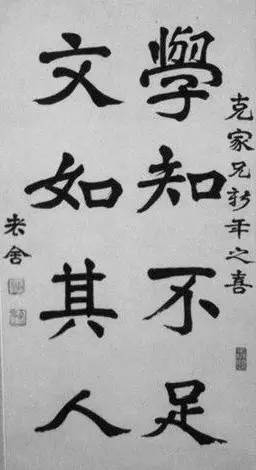 克家兄新年之喜
學知不足
文如其人
老舍